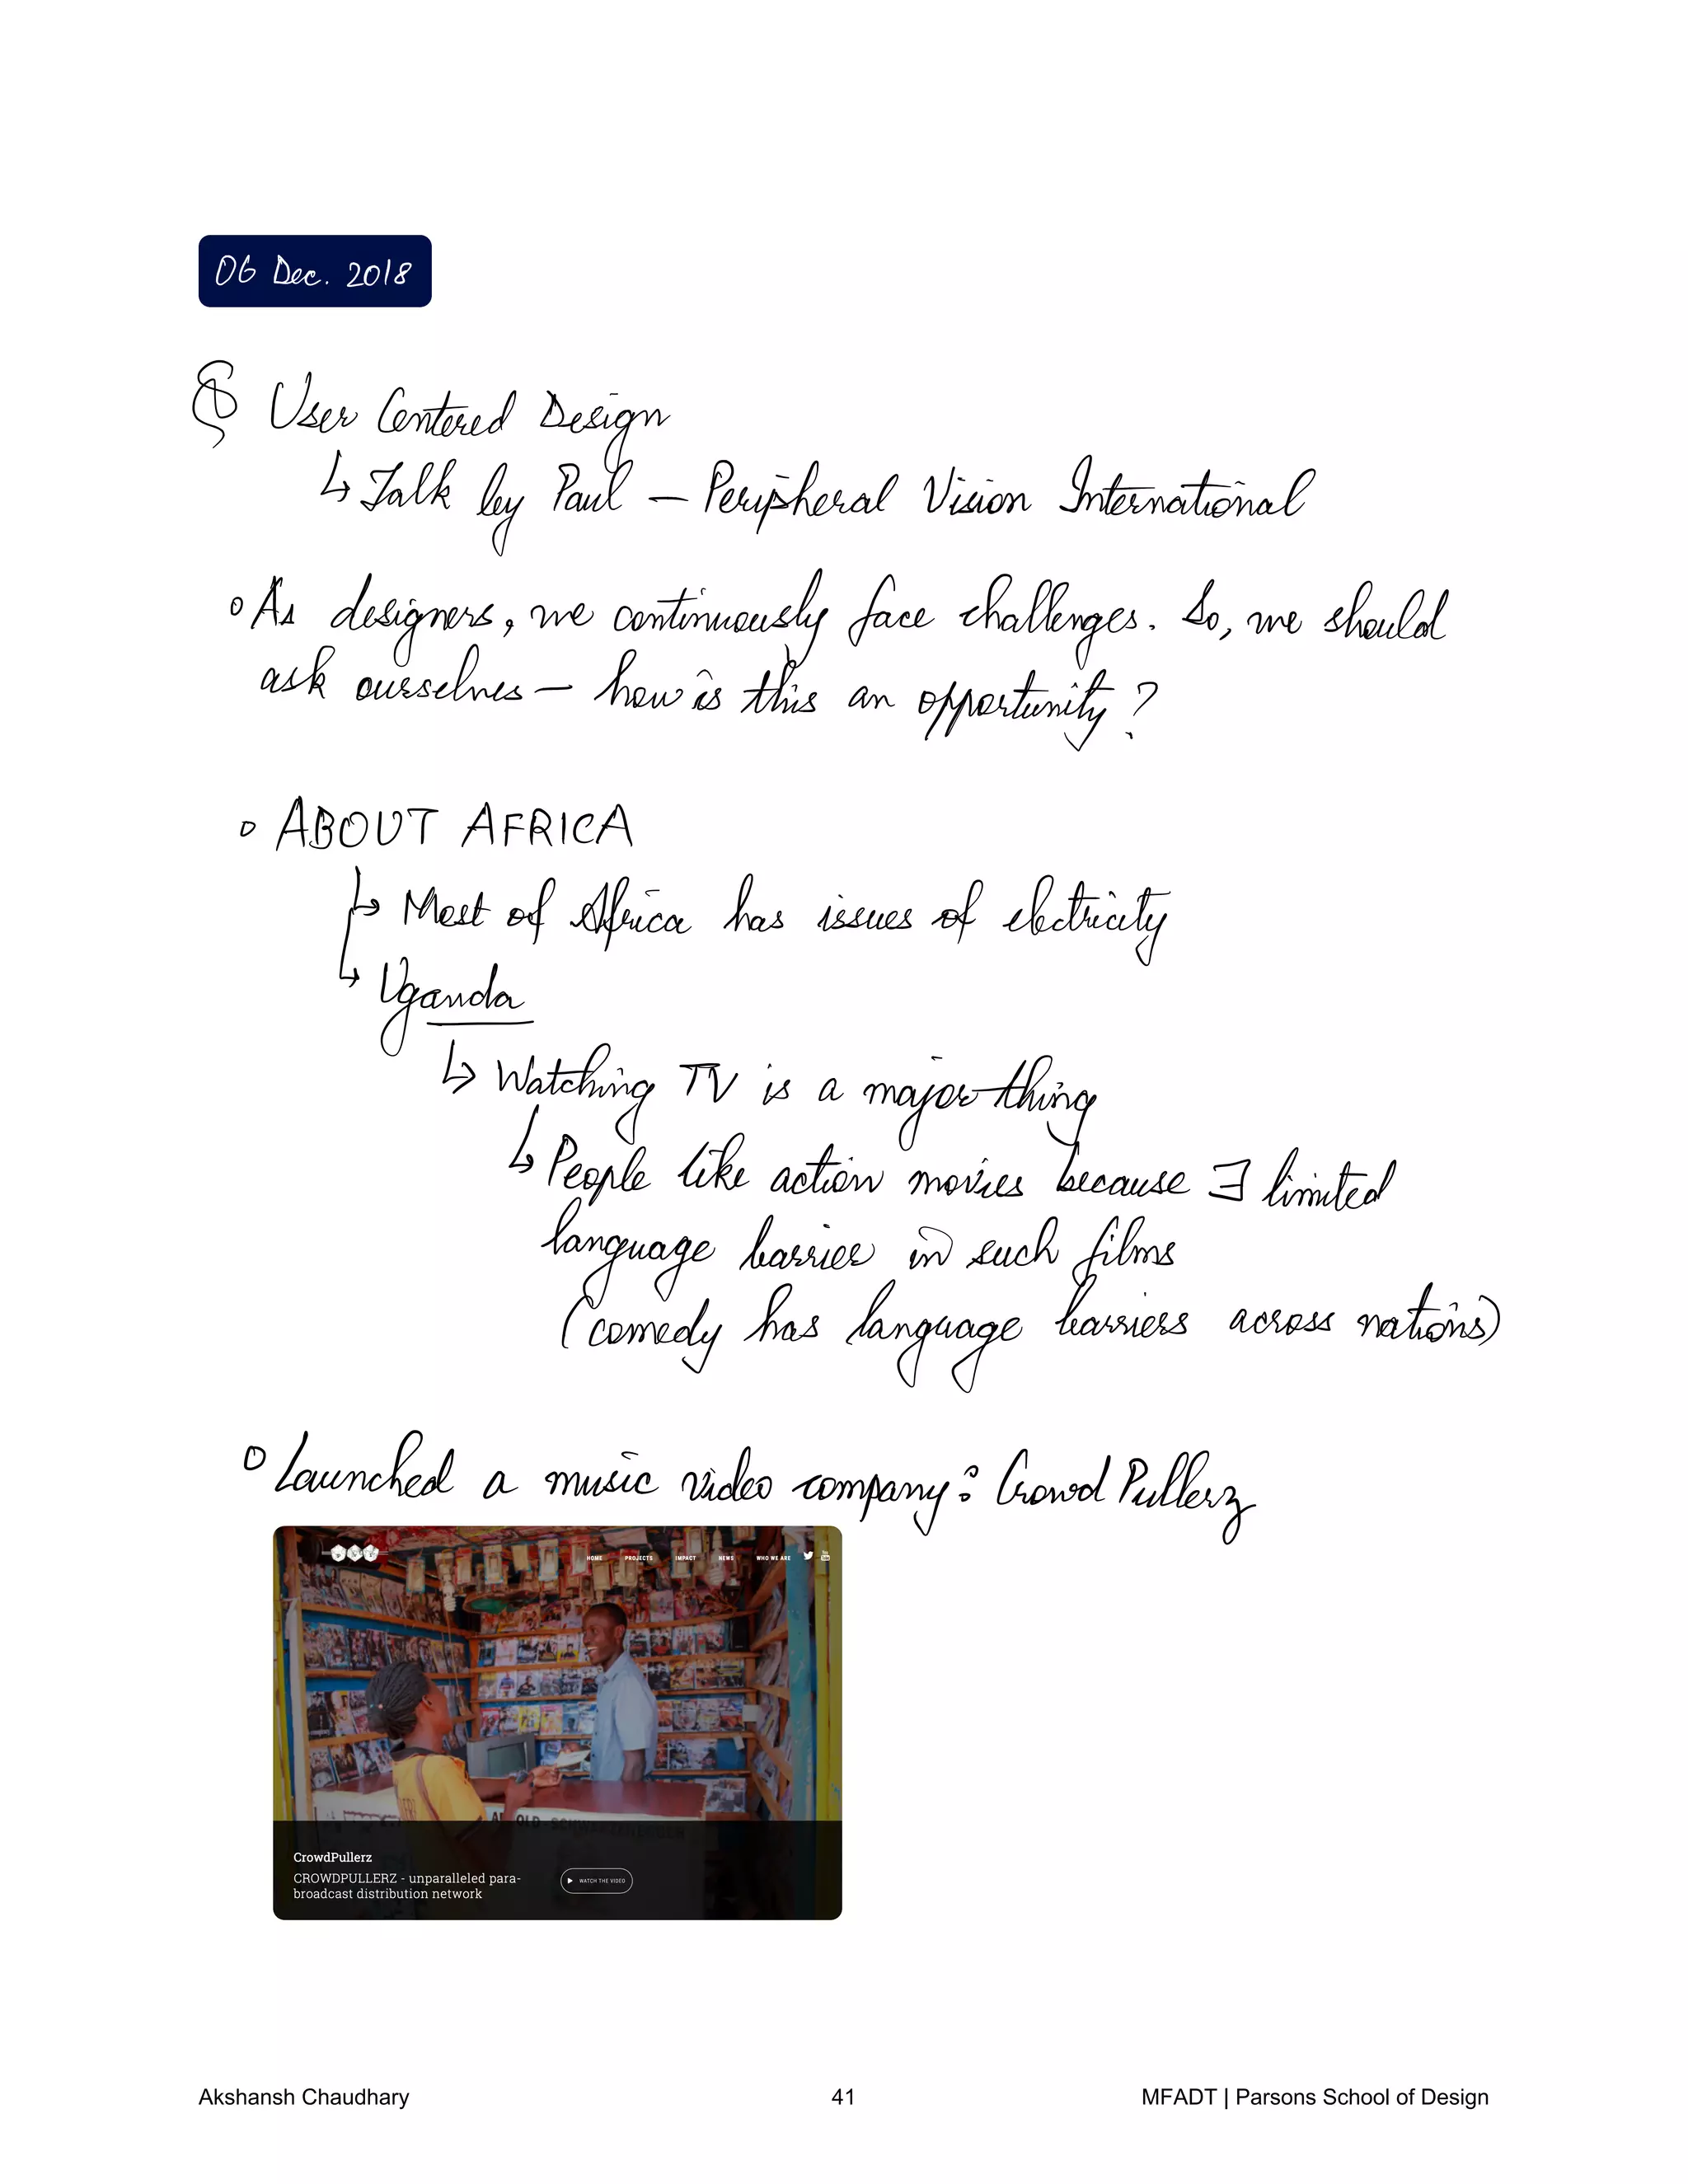 06 Dec. 2018
§ User Centered Design
↳ Talk by Paul – Peripheral Vision International
∘ As designers, we continuously face challenges. So, we should
ask ourselves – how is this an opportunity?
∘ ABOUT AFRICA
↳ Most of Africa has issues of electricity
↳ Uganda
↳ Watching TV is a major thing
↳ People like action movies because ∃ limited
language barrier in such films
(comedy has language barriers across nations)
∘ Launched a music video company: CrowdPullerz
HOME PROJECTS IMPACT NEWS WHO WE ARE
CrowdPullerz
CROWDPULLERZ - unparalleled para-
broadcast distribution network
WATCH THE VIDEO
Akshansh Chaudhary 41 MFADT | Parsons School of Design